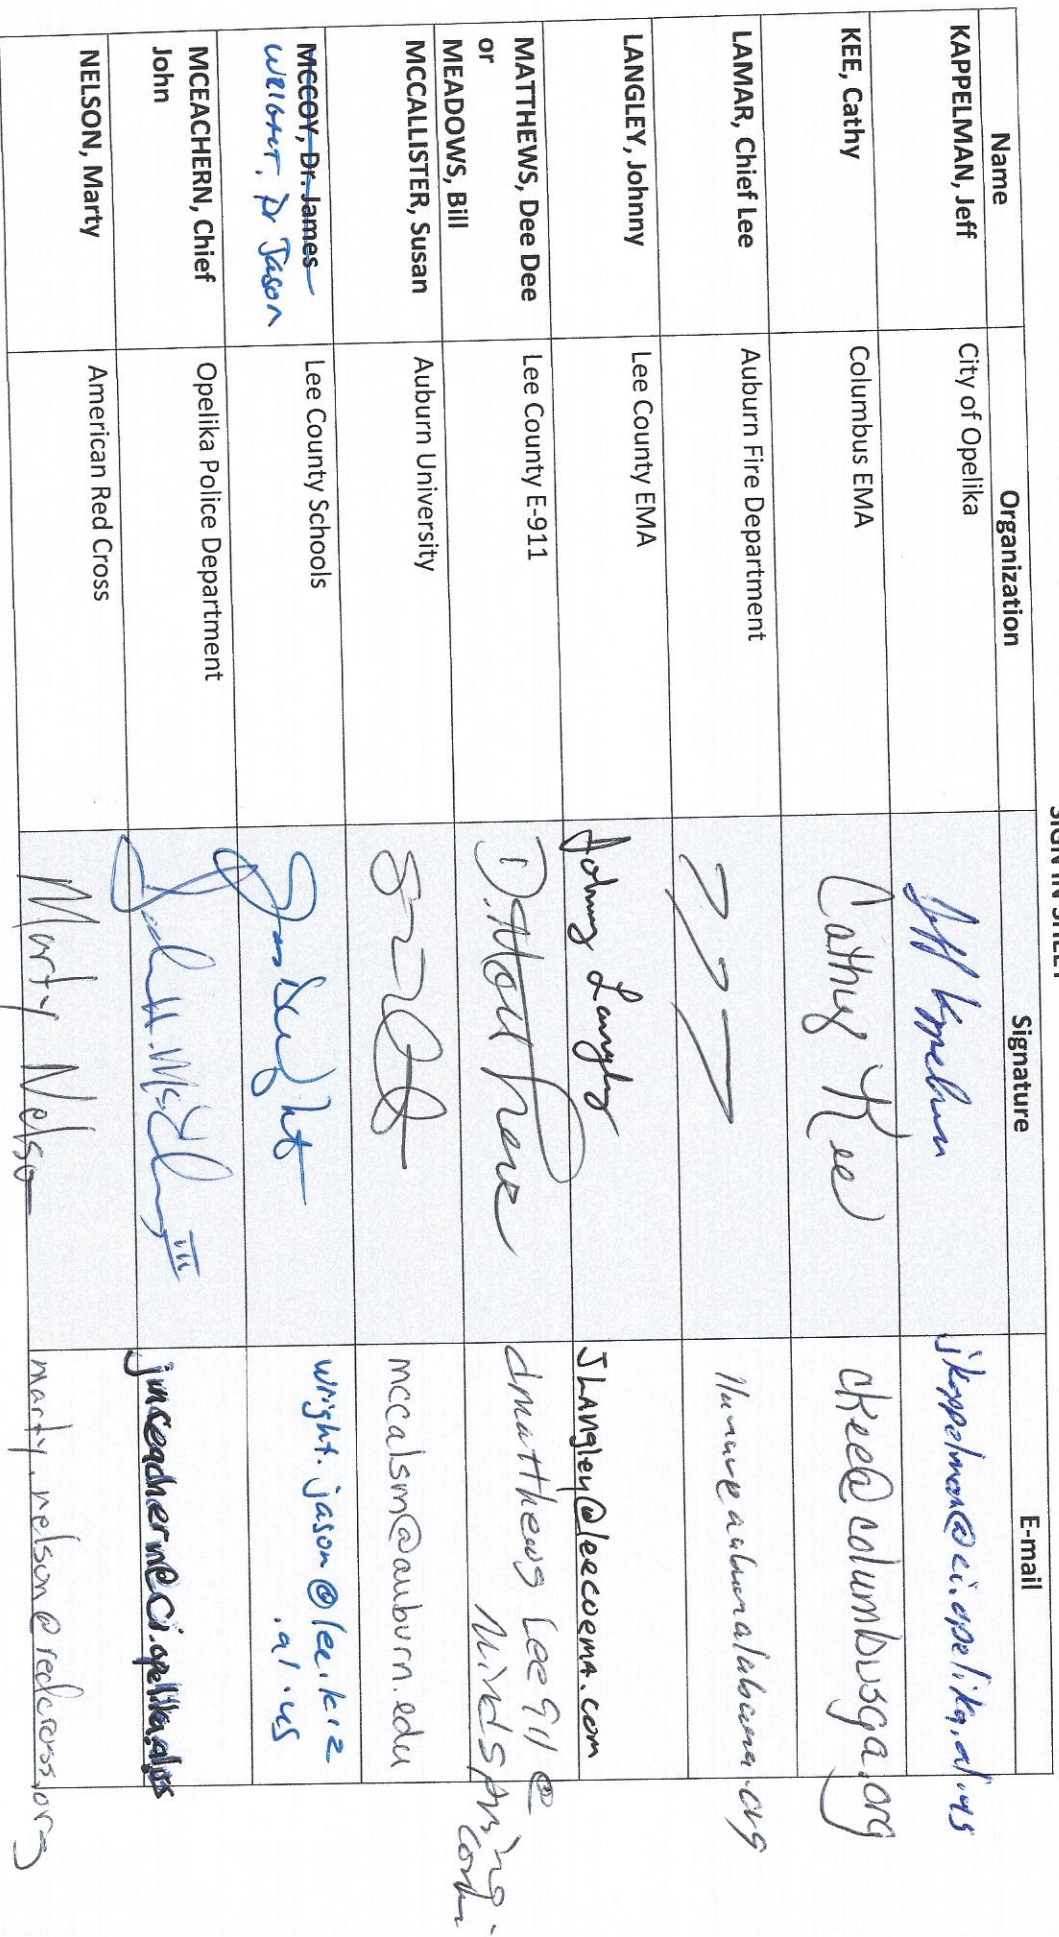 SIGN IN SHEET
Name Organization Signature E-mail
KAPPELMAN, Jeff City of Opelika Jeff Kappelman jkappelman@ci.opelika.al.us
KEE, Cathy Columbus EMA Cathy Kee ckee@columbusga.org
LAMAR, Chief Lee Auburn Fire Department
LANGLEY, Johnny Lee County EMA Johnny Langley JLangley@leecoema.com
MATTHEWS, Dee Dee Lee County E-911 dmatthews Lee911@
or mindspring.
MEADOWS, Bill com
MCCALLISTER, Susan Auburn University mccalsm@auburn.edu
MCCOY, Dr. James Lee County Schools wright.jason@lee.k12
WRIGHT, Dr Jason .al.us
MCEACHERN, Chief Opelika Police Department John H. McEachern III jmceachern@ci.opelika.al.us
John
NELSON, Marty American Red Cross Marty Nelson marty.nelson@redcross.org